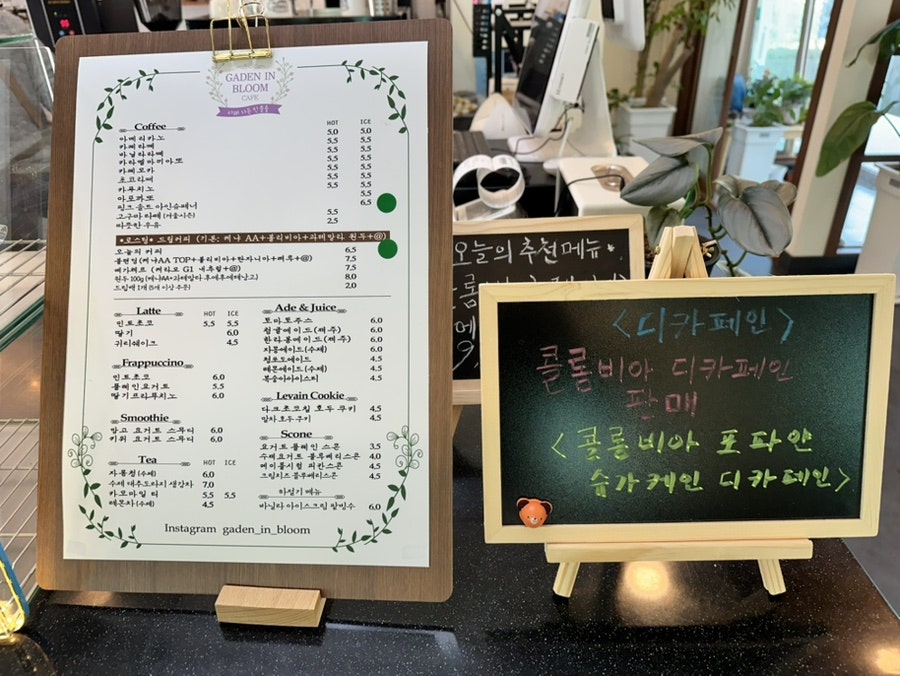 GADEN IN
BLOOM
CAFE
Coffee HOT ICE
아메리카노 5.0 5.0
카페라떼 5.5 5.5
바닐라라떼 5.5 5.5
카라멜마끼아또 5.5 5.5
카페모카 5.5 5.5
초코라떼 5.5 5.5
카푸치노
아포가토 5.5
핑크 솔트 아인슈페너 6.5
고구마 라떼 (겨울시즌) 5.5
따뜻한 우유 2.5
*로스팅* 드립커피 (기본: 케냐 AA+콜롬비아+과테말라 원두+@)
오늘의 커피 6.5
블렌딩(케냐AA TOP+콜롬비아+탄자니아+페루+@) 7.5
예가체프 (게라오 G1 내추럴+@) 7.5
원두 100g 8.0
드립백 1개 (5개 이상 주문) 2.0
Latte HOT ICE
민트초코 5.5 5.5
딸기 6.0
귀리쉐이크 4.5
Frappuccino
민트초코 6.0
플레인요거트 5.5
딸기프라푸치노 6.0
Smoothie
망고 요거트 스무디 6.0
키위 요거트 스무디 6.0
Tea HOT ICE
자몽청(수제) 6.0
수제 대추도라지 생강차 7.0
카모마일 티 5.5 5.5
레몬차(수제) 4.5
Ade & Juice
토마토주스 6.0
청귤에이드(제주) 6.0
한라봉에이드(제주) 6.0
자몽에이드(수제) 6.0
청포도에이드 4.5
레몬에이드(수제) 4.5
복숭아아이스티 4.5
Levain Cookie
다크초코칩 호두 쿠키 4.5
말차 호두 쿠키 4.5
Scone
요거트 플레인 스콘 3.5
수제요거트 블루베리스콘 4.0
메이플시럽 피칸스콘 4.5
크림치즈 블루베리스콘 4.5
하절기 메뉴
바닐라 아이스크림 팥빙수 6.0
Instagram gaden_in_bloom
오늘의 추천메뉴
<디카페인>
콜롬비아 디카페인
판매
<콜롬비아 포파얀
슈가케인 디카페인>